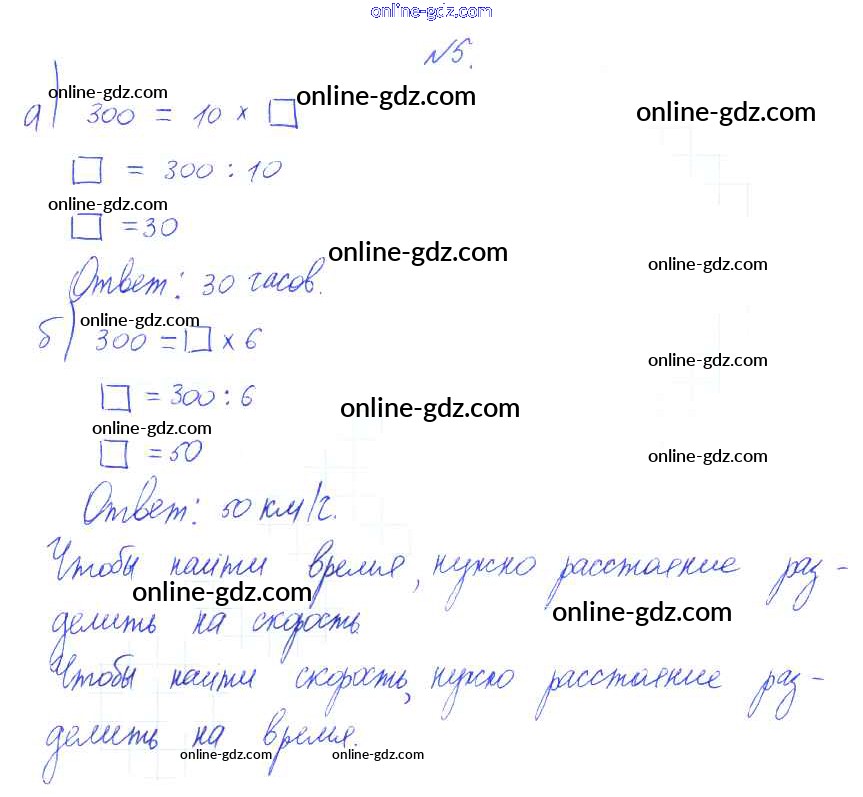 online-gdz.com
№5.
online-gdz.com online-gdz.com online-gdz.com
а) 300 = 10 × □
□ = 300 : 10
online-gdz.com
□ = 30
online-gdz.com online-gdz.com
Ответ: 30 часов.
online-gdz.com
б) 300 = □ × 6
online-gdz.com
□ = 300 : 6
online-gdz.com
online-gdz.com
□ = 50
online-gdz.com
Ответ: 50 км/ч.
Чтобы найти время, нужно расстояние раз-
online-gdz.com online-gdz.com
делить на скорость.
Чтобы найти скорость, нужно расстояние раз-
делить на время.
online-gdz.com online-gdz.com